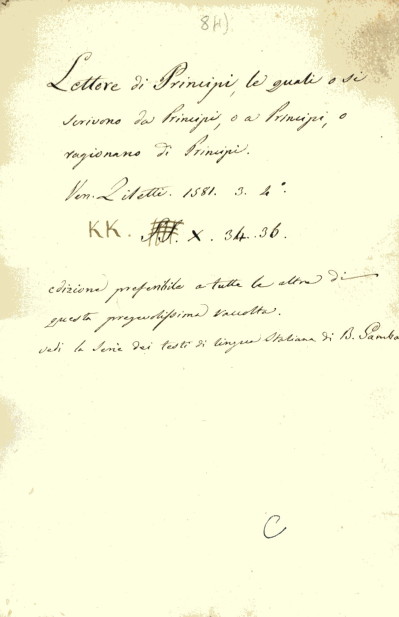 84)
Lettere di Principi, le quali o si
scrivono da Principi, o a Principi, o
ragionano di Principi.
Ven. Ziletti. 1581. 3. 4°.
KK. X. 34. 36.
edizione preferibile a tutte le altre di
questa pregevolissima raccolta.
vedi la Serie dei testi di lingua Italiana di B. Gamba
C